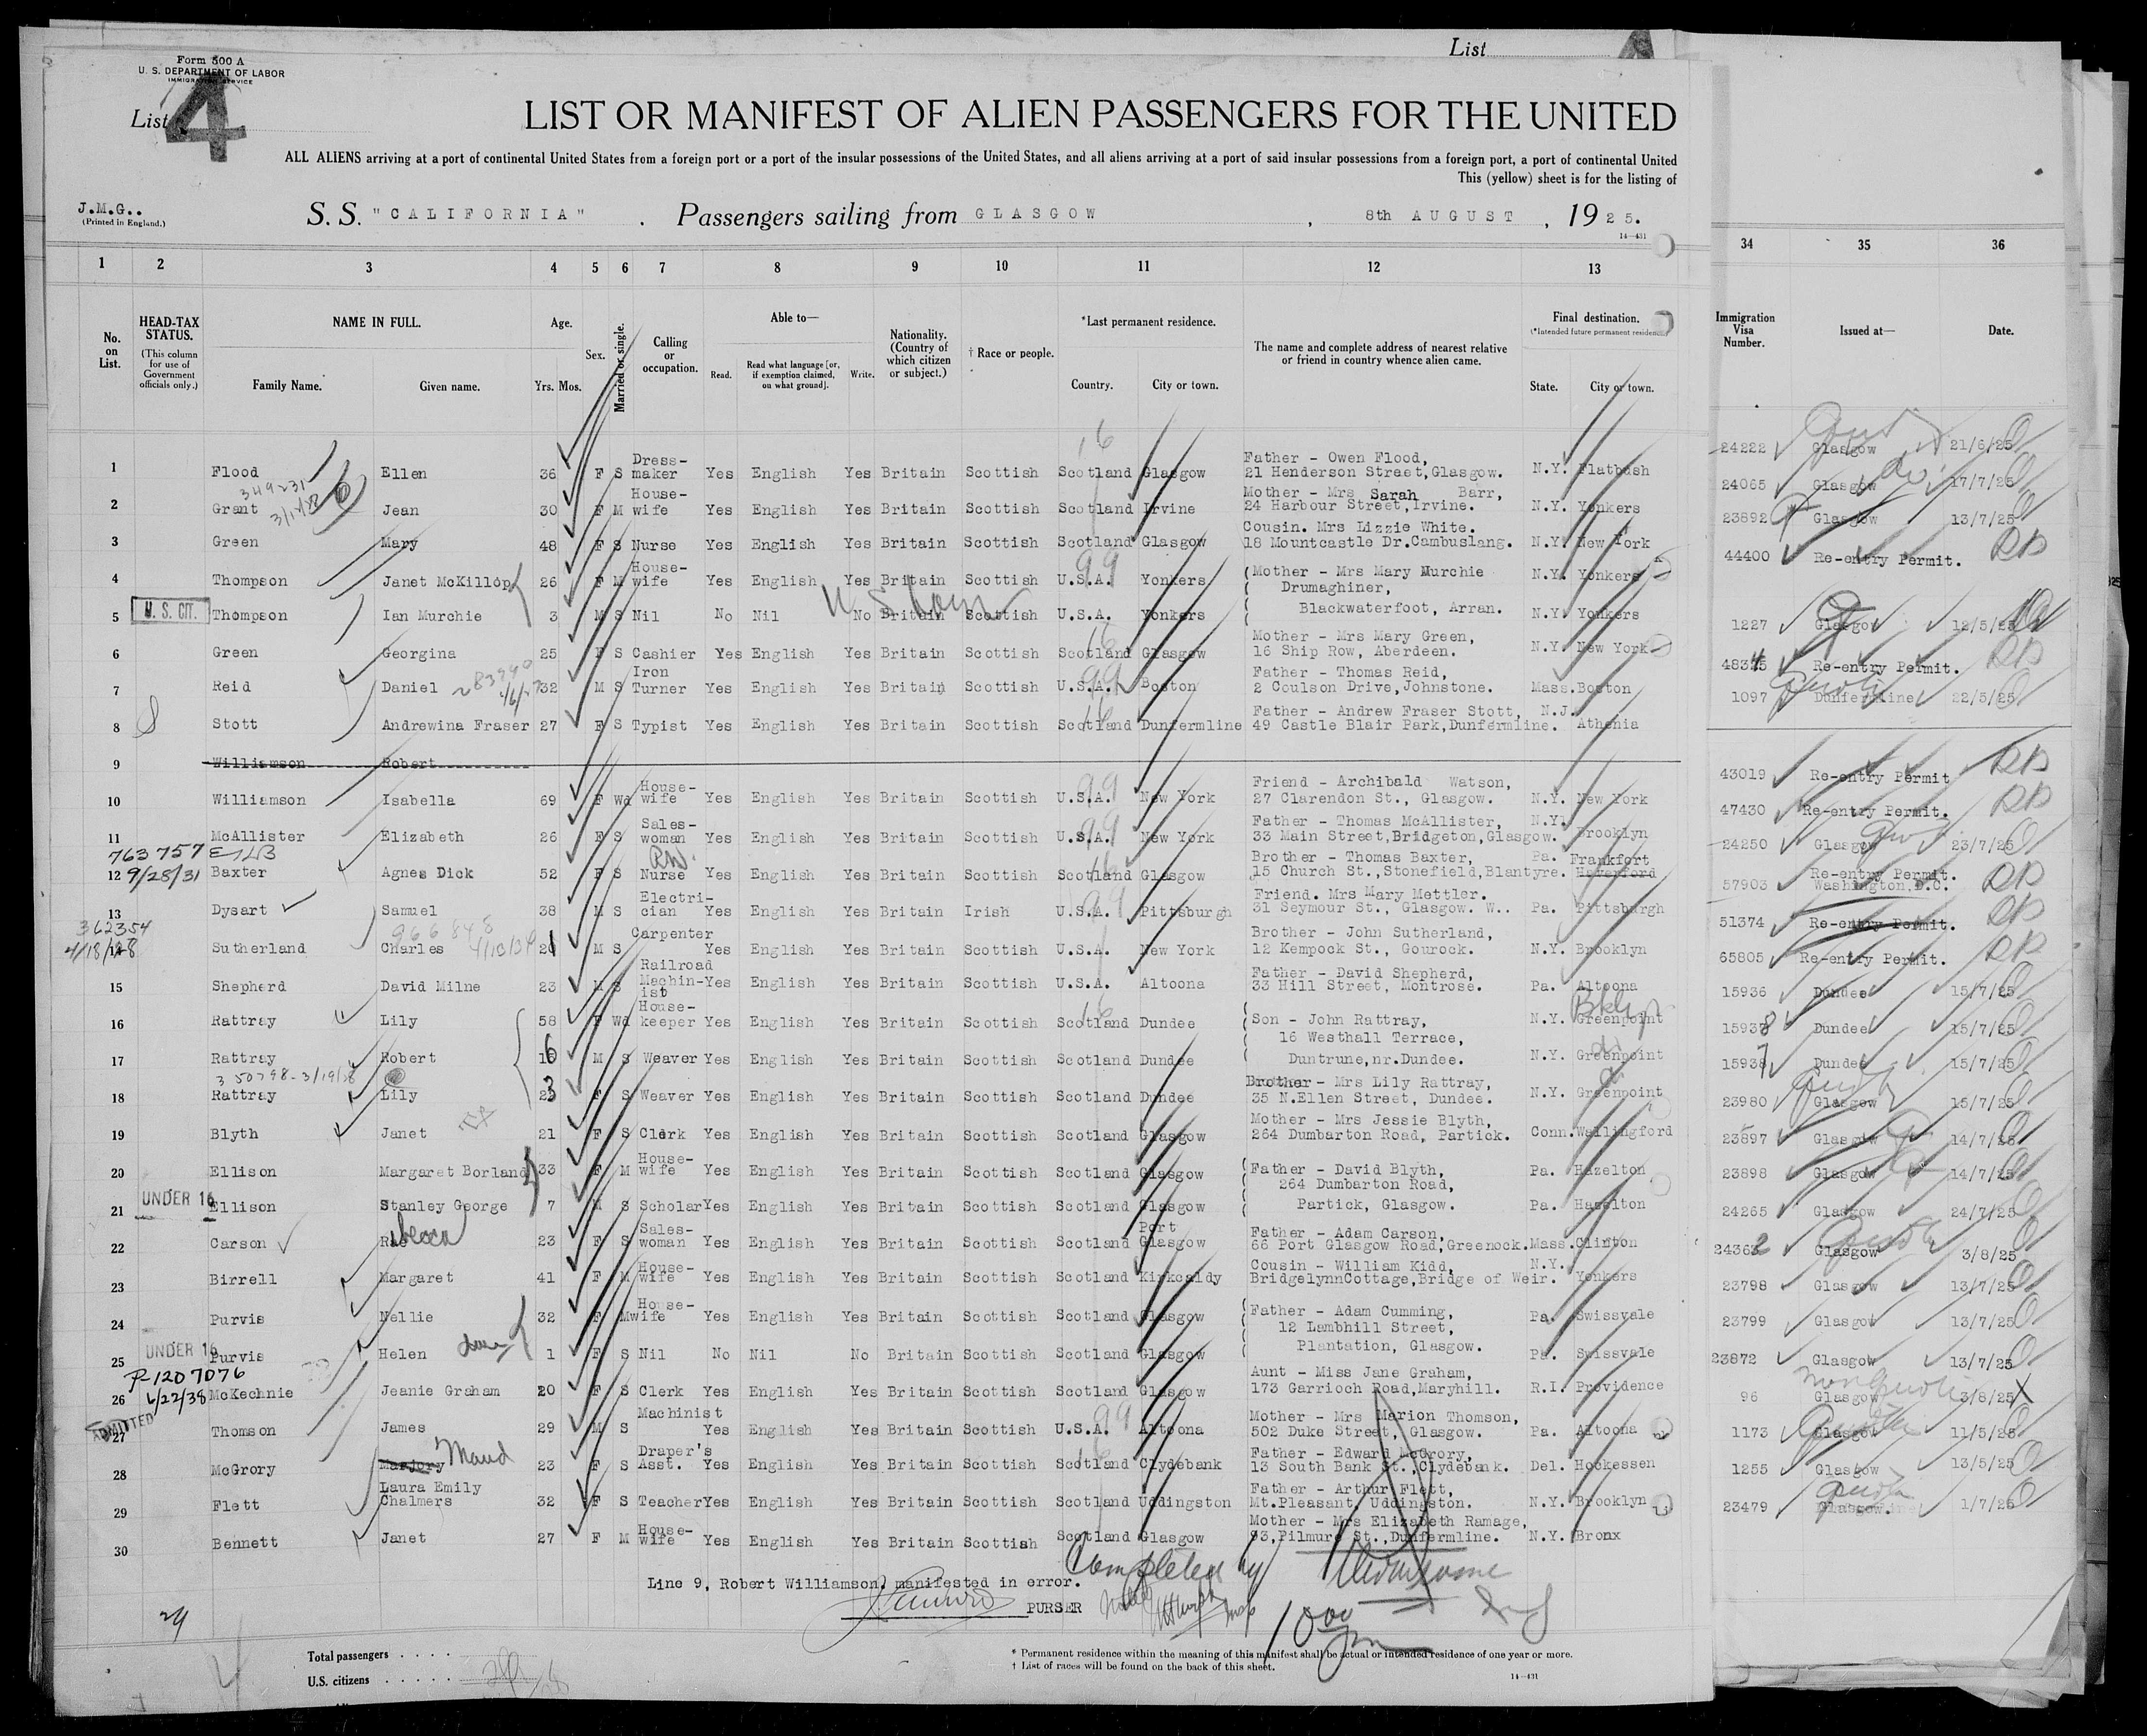 Form 500 A
U. S. DEPARTMENT OF LABOR
IMMIGRATION SERVICE
List 4
List
LIST OR MANIFEST OF ALIEN PASSENGERS FOR THE UNITED
ALL ALIENS arriving at a port of continental United States from a foreign port or a port of the insular possessions of the United States, and all aliens arriving at a port of said insular possessions from a foreign port, a port of continental United
This (yellow) sheet is for the listing of
J.M.G..
(Printed in England.)
S. S. "CALIFORNIA" . Passengers sailing from GLASGOW , 8th AUGUST , 19 25.
14—431
1 2 3 4 5 6 7 8 9 10 11 12 13 34 35 36
No. on List.
HEAD-TAX STATUS.
(This column for use of Government officials only.)
NAME IN FULL.
Family Name. Given name.
Age.
Yrs. Mos.
Sex.
Married or single.
Calling or occupation.
Able to—
Read. Read what language [or, if exemption claimed, on what ground]. Write.
Nationality. (Country of which citizen or subject.)
† Race or people.
*Last permanent residence.
Country. City or town.
The name and complete address of nearest relative or friend in country whence alien came.
Final destination.
(*Intended future permanent residence)
State. City or town.
Immigration Visa Number.
Issued at—
Date.
1 Flood Ellen 36 F S Dress-maker Yes English Yes Britain Scottish Scotland Glasgow Father - Owen Flood, 21 Henderson Street,Glasgow. N.Y. Flatbush 24222 Glasgow 21/6/25
349231
2 Grant Jean 30 F M House-wife Yes English Yes Britain Scottish Scotland Irvine Mother - Mrs Sarah Barr, 24 Harbour Street,Irvine. N.Y. Yonkers 24065 Glasgow 17/7/25
3 Green Mary 48 F S Nurse Yes English Yes Britain Scottish Scotland Glasgow Cousin. Mrs Lizzie White. 18 Mountcastle Dr.Cambuslang. N.Y. New York 23892 Glasgow 13/7/25
4 Thompson Janet McKillop 26 F M House-wife Yes English Yes Britain Scottish U.S.A. Yonkers Mother - Mrs Mary Murchie N.Y. Yonkers 44400 Re-entry Permit.
Drumaghiner,
5 U. S. CIT. Thompson Ian Murchie 3 M S Nil No Nil No Britain Scottish U.S.A. Yonkers Blackwaterfoot, Arran. N.Y. Yonkers
U S born
6 Green Georgina 25 F S Cashier Yes English Yes Britain Scottish Scotland Glasgow Mother - Mrs Mary Green, 16 Ship Row, Aberdeen. N.Y. New York 1227 Glasgow 12/5/25
7 Reid Daniel 32 M S Iron Turner Yes English Yes Britain Scottish U.S.A. Boston Father - Thomas Reid, 2 Coulson Drive,Johnstone. Mass. Boston Re-entry Permit.
8 Stott Andrewina Fraser 27 F S Typist Yes English Yes Britain Scottish Scotland Dunfermline Father - Andrew Fraser Stott, 49 Castle Blair Park,Dunfermline. N.J. Athenia 1097 Dunfermline 22/5/25
9 Williamson Robert
10 Williamson Isabella 69 F Wd House-wife Yes English Yes Britain Scottish U.S.A. New York Friend - Archibald Watson, 27 Clarendon St., Glasgow. N.Y. New York 43019 Re-entry Permit
11 McAllister Elizabeth 26 F S Sales-woman Yes English Yes Britain Scottish U.S.A. New York Father - Thomas McAllister, 33 Main Street,Bridgeton,Glasgow. N.Y. Brooklyn 47430 Re-entry Permit.
763757
12 9/28/31 Baxter Agnes Dick 52 F S Nurse Yes English Yes Britain Scottish Scotland Glasgow Brother - Thomas Baxter, 15 Church St.,Stonefield,Blantyre. Pa. Frankfort Haverford 24250 Glasgow 23/7/25
13 Dysart Samuel 38 M S Electri-cian Yes English Yes Britain Irish U.S.A. Pittsburgh Friend. Mrs Mary Mettler. 31 Seymour St., Glasgow. W.. Pa. Pittsburgh 57903 Re-entry Permit. Washington,D.C.
362354
4/18/28
14 Sutherland Charles 20 M S Carpenter Yes English Yes Britain Scottish U.S.A. New York Brother - John Sutherland, 12 Kempock St., Gourock. N.Y. Brooklyn 51374 Re-entry Permit.
15 Shepherd David Milne 23 M S Railroad Machin-ist Yes English Yes Britain Scottish U.S.A. Altoona Father - David Shepherd, 33 Hill Street, Montrose. Pa. Altoona 65805 Re-entry Permit.
16 Rattray Lily 58 F Wd House-keeper Yes English Yes Britain Scottish Scotland Dundee Son - John Rattray, N.Y. Greenpoint 15936 Dundee 15/7/25
Bklyn
16 Westhall Terrace,
17 Rattray Robert 16 M S Weaver Yes English Yes Britain Scottish Scotland Dundee Duntrune,nr.Dundee. N.Y. Greenpoint 15938 Dundee 15/7/25
350798-3/19/28
18 Rattray Lily 23 F S Weaver Yes English Yes Britain Scottish Scotland Dundee Brother - Mrs Lily Rattray, 35 N.Ellen Street, Dundee. N.Y. Greenpoint 15937 Dundee 15/7/25
19 Blyth Janet 21 F S Clerk Yes English Yes Britain Scottish Scotland Glasgow Mother - Mrs Jessie Blyth, 264 Dumbarton Road, Partick. Conn. Wallingford 23980 Glasgow 15/7/25
20 Ellison Margaret Borland 33 F M House-wife Yes English Yes Britain Scottish Scotland Glasgow Father - David Blyth, Pa. Hazelton 23897 Glasgow 14/7/25
264 Dumbarton Road,
21 UNDER 16 Ellison Stanley George 7 M S Scholar Yes English Yes Britain Scottish Scotland Glasgow Partick, Glasgow. Pa. Hazelton 23898 Glasgow 14/7/25
22 Carson Rebecca 23 F S Sales-woman Yes English Yes Britain Scottish Scotland Port Glasgow Father - Adam Carson, 66 Port Glasgow Road,Greenock. Mass. Clinton 24265 Glasgow 24/7/25
23 Birrell Margaret 41 F M House-wife Yes English Yes Britain Scottish Scotland Kirkcaldy Cousin - William Kidd, BridgelynnCottage,Bridge of Weir. N.Y. Yonkers 24362 Glasgow 3/8/25
24 Purvis Nellie 32 F M House-wife Yes English Yes Britain Scottish Scotland Glasgow Father - Adam Cumming, Pa. Swissvale 23798 Glasgow 13/7/25
12 Lambhill Street,
25 UNDER 16 Purvis Helen 1 F S Nil No Nil No Britain Scottish Scotland Glasgow Plantation, Glasgow. Pa. Swissvale 23799 Glasgow 13/7/25
P-1207076
26 6/22/38 McKechnie Jeanie Graham 20 F S Clerk Yes English Yes Britain Scottish Scotland Glasgow Aunt - Miss Jane Graham, 173 Garrioch Road,Maryhill. R.I. Providence 23872 Glasgow 13/7/25
27 ADMITTED Thomson James 29 M S Machinist Yes English Yes Britain Scottish U.S.A. Altoona Mother - Mrs Marion Thomson, 502 Duke Street, Glasgow. Pa. Altoona 96 Glasgow 3/8/25
Non Quota
28 McGrory Marjory Maud 23 F S Draper's Asst. Yes English Yes Britain Scottish Scotland Clydebank Father - Edward McGrory, 13 South Bank St.,Clydebank. Del. Hockessen 1173 Glasgow 11/5/25
29 Flett Laura Emily Chalmers 32 F S Teacher Yes English Yes Britain Scottish Scotland Uddingston Father - Arthur Flett, Mt.Pleasant, Uddingston. N.Y. Brooklyn 1255 Glasgow 13/5/25
30 Bennett Janet 27 F M House-wife Yes English Yes Britain Scottish Scotland Glasgow Mother - Mrs Elizabeth Ramage, 93,Pilmure St.,Dunfermline. N.Y. Bronx 23479 Glasgow. 1/7/25
Completed by
Line 9, Robert Williamson, manifested in error.
PURSER
29
Total passengers . . . .
U.S. citizens . . . . .
* Permanent residence within the meaning of this manifest shall be actual or intended residence of one year or more.
† List of races will be found on the back of this sheet.
14—431